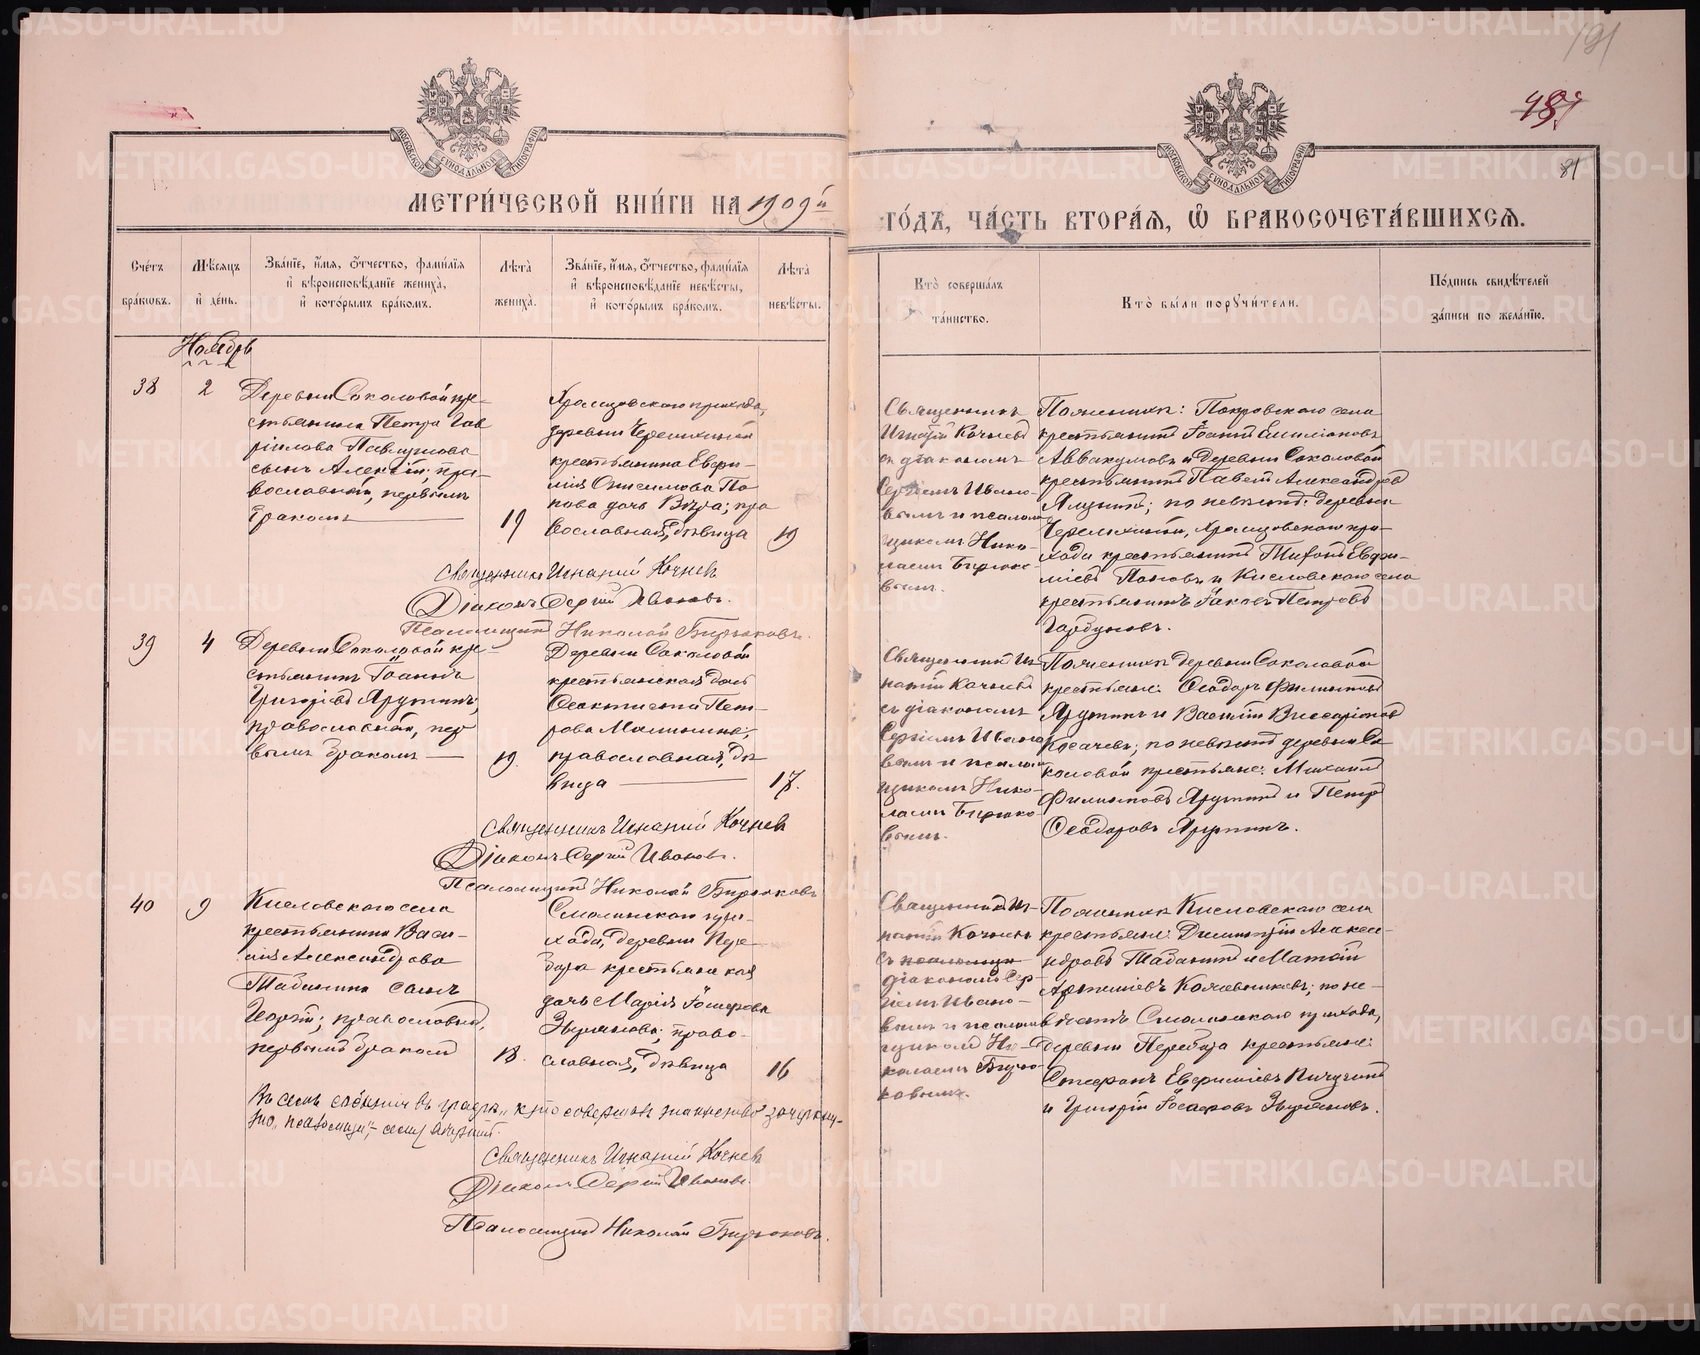 191
487
81
МОСКОВСКОЙ СУНОДАЛЬНОЙ ТИПОГРАФІИ
МОСКОВСКОЙ СУНОДАЛЬНОЙ ТИПОГРАФІИ
МЕТРИ́ЧЕСКОЙ КНИ́ГИ НА 1909й
ГО́ДЪ, ЧА́СТЬ ВТОРА́Я, Ѡ БРАКОСОЧЕТА́ВШИХСЯ.
Сче́тъ
бра́ковъ.
Мѣ́сяцъ
и҆ де́нь.
Зва́нїе, и҆́мя, ѻ҆́тчество, фами́лїя
и҆ вѣроисповѣ́данїе жениха̀,
и҆ кото́рымъ бра́комъ.
Лѣ́та̀
жениха̀.
Зва́нїе, и҆́мя, ѻ҆́тчество, фами́лїя
и҆ вѣроисповѣ́данїе невѣ́сты,
и҆ кото́рымъ бра́комъ.
Лѣ́та̀
невѣ́сты.
Кто̀ соверша́лъ
та́инство.
Кто̀ бы́ли порꙋчи́тели.
По́дпись свидѣ́телей
за́писи по жела́нїю.
Ноябрь
38
2
Деревни Соколовой кре-
стьянина Петра Гав
ріилова Павлинова
сынъ Алексій; пра-
вославный, первымъ
бракомъ
19
Храмцовскаго прихода,
деревни Черемхиной
крестьянина Евѳи-
мія Онисимова По
пова дочь Вѣра; пра
вославная, дѣвица
19
Священникъ
Игнатій Кочневъ
съ діакономъ
Сергіемъ Ивано-
вымъ и псалом
щикомъ Нико-
лаемъ Бирюко-
вымъ.
По женихѣ: Покровскаго села
крестьянинъ Іоаннъ Емиліановъ
Аввакумовъ и деревни Соколовой
крестьянинъ Павелъ Александровъ
Ярушинъ; по невѣстѣ: деревни
Черемхиной, Храмцовскаго при-
хода крестьянинъ Тихонъ Евѳи-
міевъ Поповъ и Кисловскаго села
крестьянинъ Іаковъ Петровъ
Горбуновъ.
Священникъ Игнатій Кочневъ
Діаконъ Сергій Ивановъ.
Псаломщикъ Николай Бирюковъ.
39
4
Деревни Соколовой кре-
стьянинъ Іоаннъ
Григоріевъ Ярушинъ;
православный, пер
вымъ бракомъ
19.
Деревни Соколовой
крестьянская дочь
Ѳеоктиста Пет-
рова Малинина;
православная, дѣ
вица
17.
Священникъ Иг
натій Кочневъ
съ діакономъ
Сергіемъ Ивано
вымъ и псалом
щикомъ Нико-
лаемъ Бирюко
вымъ.
По женихѣ деревни Соколовой
крестьяне: Ѳеодоръ Филипповъ
Ярушинъ и Василій Виссаріоновъ
Косачевъ; по невѣстѣ деревни Со
коловой крестьяне: Михаилъ
Филипповъ Ярушинъ и Петръ
Ѳеодоровъ Ярушинъ.
Священникъ Игнатій Кочневъ
Діаконъ Сергій Ивановъ.
Псаломщикъ Николай Бирюковъ
40
9
Кисловскаго села
крестьянина Васи-
лія Александрова
Табанина сынъ
Георгій; православный,
первымъ бракомъ
18.
Смолинскаго при-
хода, деревни Пере
бора крестьянская
дочь Марія Іосифова
Зырянова; право-
славная, дѣвица
16
Священникъ Иг-
натій Кочневъ
съ псаломщи
діакономъ Сер
гіемъ Ивано-
вымъ и псалом
щикомъ Ни-
колаемъ Бирю-
ковымъ.
По женихѣ Кисловскаго села
крестьяне: Димитрій Алексан-
дровъ Табанинъ и Матѳій
Артеміевъ Кожевниковъ; по не-
вѣстѣ Смолинскаго прихода,
деревни Перебора крестьяне:
Стефанъ Евѳиміевъ Пичугинъ
и Григорій Іосифовъ Зыряновъ.
Въ семъ событіи въ графѣ „кто совершалъ таинство" зачеркну-
то „псаломщи",
Священникъ Игнатій Кочневъ
Діаконъ Сергій Ивановъ.
Псаломщикъ Николай Бирюковъ.
METRIKI.GASO-URAL.RU